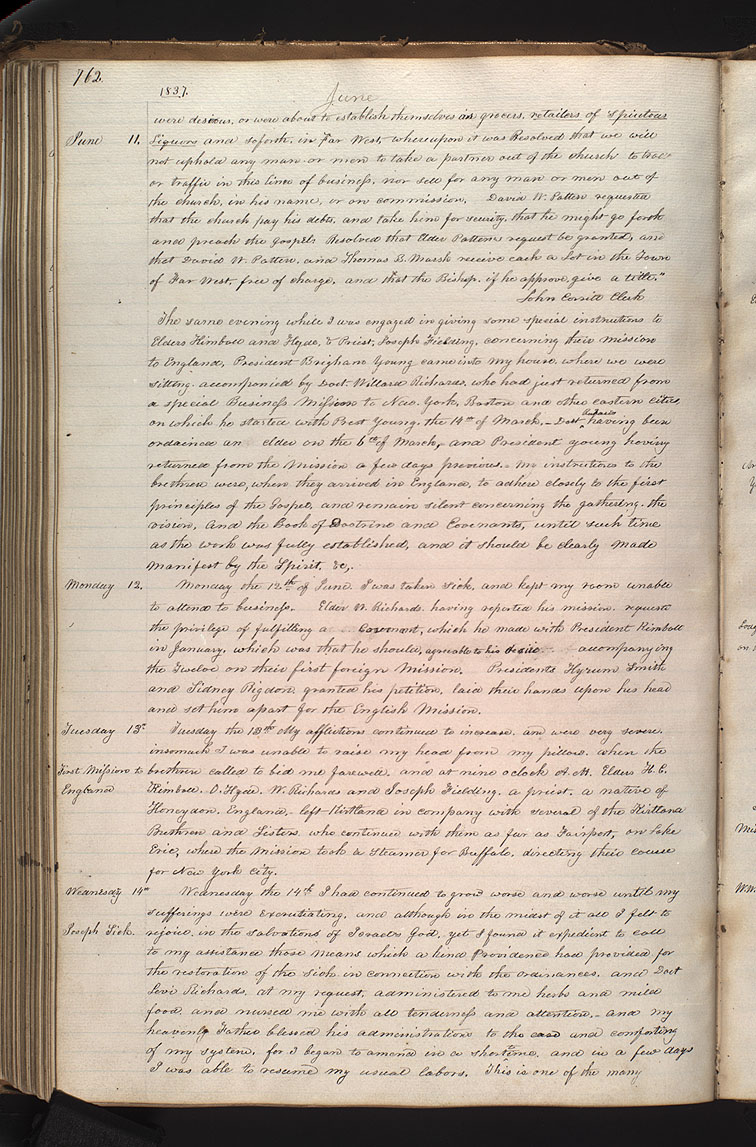 762
1837.
June
were desirous, or were about to establish themselves as grocers, retailers of Spiritous
June 11. Liquors and soforth, in Far West, whereupon it was Resolved that we will
not uphold any man or men to take a partner out of the church to trade
or traffic in this line of business, nor sell for any man or men out of
the church, in his name, or on commission. David W. Patten requested
that the church pay his debts, and take him for security, that he might go forth
and preach the gospel: Resolved that Elder Pattens request be granted, and
that David W. Patten, and Thomas B. Marsh receive each a Lot in the Town
of Far West, free of charge, and that the Bishop, if he approve, give a title."
John Corrill Clerk
The same evening while I was engaged in giving some special instructions to
Elders Kimball and Hyde, & Priest, Joseph Fielding, concerning their mission
to England, President Brigham Young came into my house, where we were
sitting, accompanied by Doct. Willard Richards, who had just returned from
a special Business Mission to New York, Boston and other eastern cities,
on which he started with Prest Young, the 14th of March,– Doct Richards having been
ordained an elder on the 6th of March,– and President young having
returned from the Mission a few days previous.– My instructions to the
brethren were, when they arrived in England, to adhere closely to the first
principles of the Gospel, and remain silent concerning the gathering, the
vision, and the Book of Doctrine and Covenants, until such time
as the work was fully established, and it should be clearly made
manifest by the Spirit, &c,.
Monday 12. Monday the 12th of June. I was taken sick, and kept my room unable
to attend to business. Elder W. Richards having reported his mission, requests
the privilege of fulfilling a covenant, which he made with President Kimball
in January, which was that he should, agreeable to his desire accompanying
the Twelve on their first foreign Mission. Presidents Hyrum Smith
and Sidney Rigdon, granted his petition, laid their hands upon his head
and set him apart for the English Mission.
Tuesday 13th Tuesday the 13th My afflictions continued to increase, and were very severe,
insomuch I was unable to raise my head from my pillow, when the
First Mission to brethren called to bid me farewell, and at nine oclock A.M. Elders H. C.
England Kimball, O. Hyde, W. Richards and Joseph Fielding, a priest, a native of
Honeydon, England,– left Kirtland in company with several of the Kirtland
Brethren and Sisters who continued with them as far as Fairport, on Lake
Erie, where the Mission took a Steamer for Buffalo, directing their course
for New York City.
Wednesday 14th Wednesday the 14th I had continued to grow worse and worse until my
sufferings were excrutiating, and although in the midst of it all I felt to
Joseph Sick. rejoice, in the salvations of Israels God, yet I found it expedient to call
to my assistance those means which a kind Providence had provided for
the restoration of the sick, in connection with the ordinances, and Doct
Levi Richards, at my request, administered to me herbs and mild
food, and nursed me with all tenderness and attention,– and my
heavenly Father blessed his administration to the ease and comforting
of my system, for I began to amend in a short time, and in a few days
I was able to resume my usual labors. This is one of the many